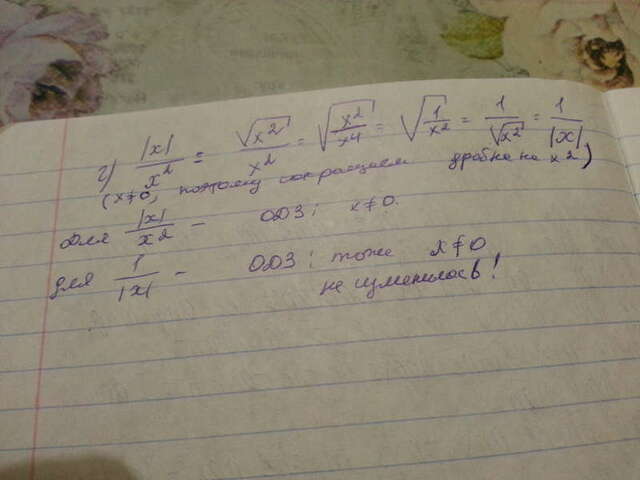 г) |x|/x² = √x²/x² = √(x²/x⁴) = √(1/x²) = 1/√x² = 1/|x|
(x≠0, поэтому сокращаем дробь на x²)
для |x|/x² – ОДЗ: x≠0.
для 1/|x| – ОДЗ: тоже x≠0
не изменилось!